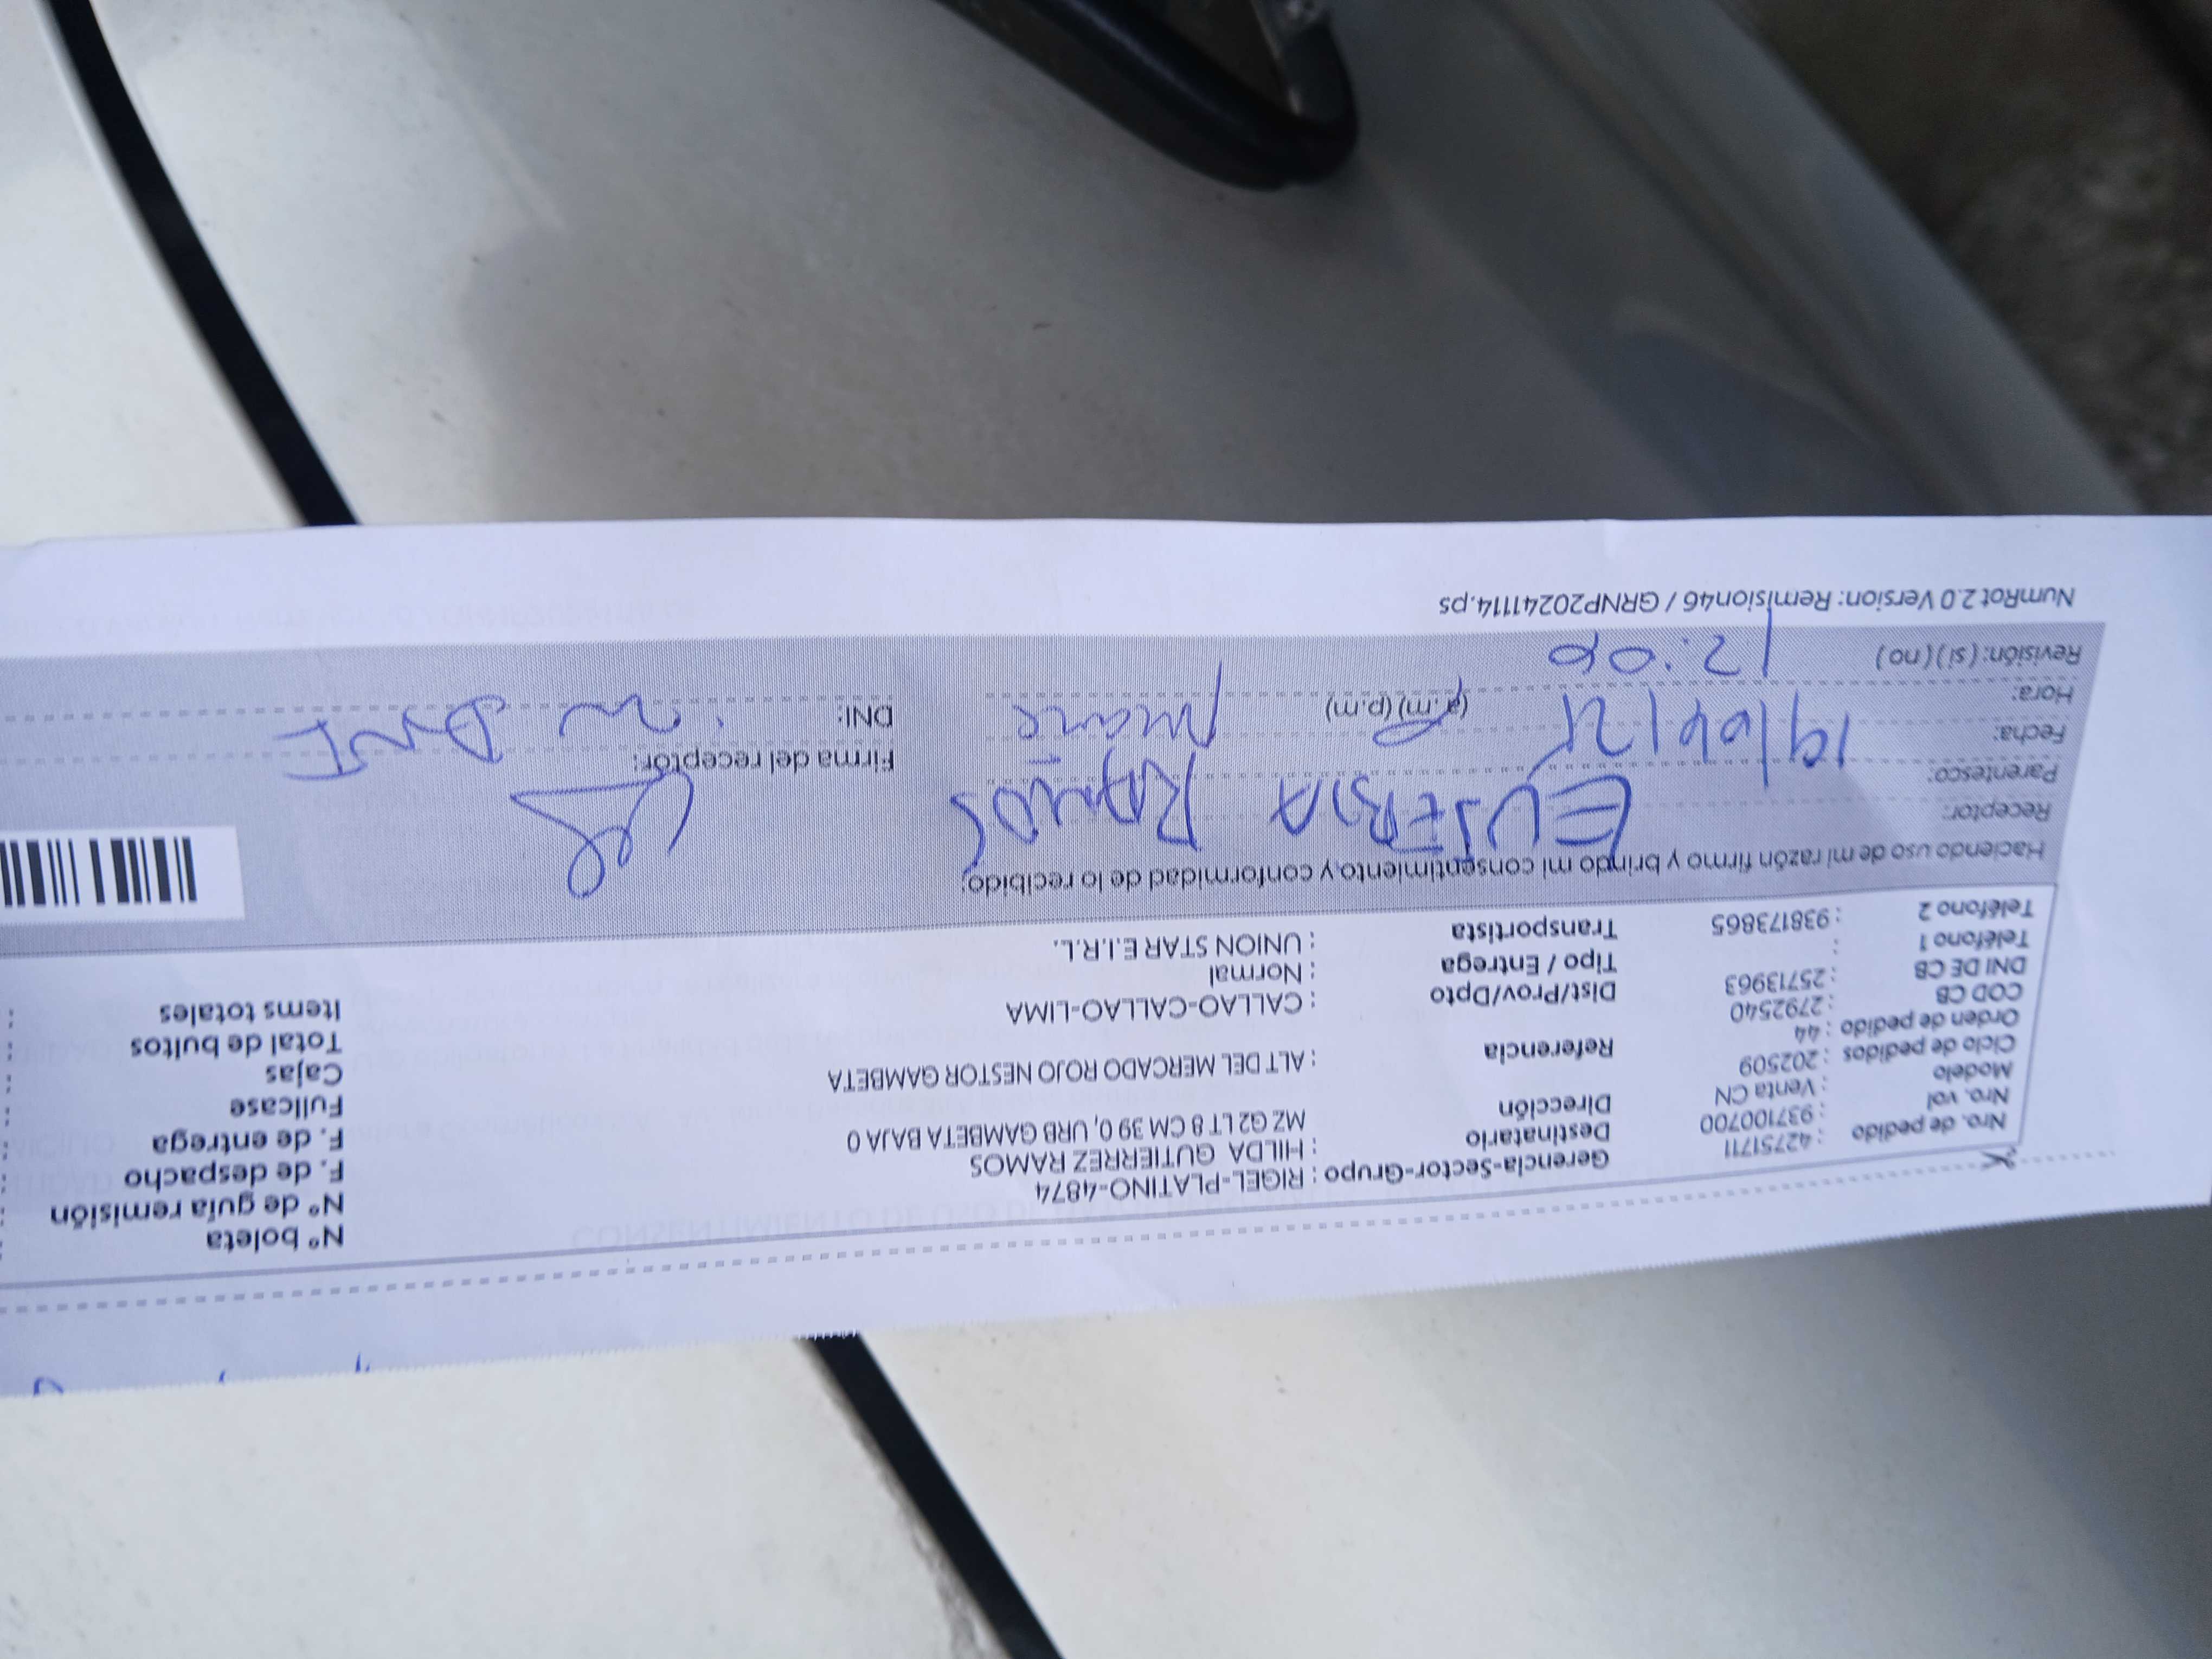 Nro. de pedido : 42751711
Nro. vol : 937100700
Modelo : Venta CN
Ciclo de pedidos : 202509
Orden de pedido : 44
COD CB : 2792540
DNI DE CB : 25713963
Teléfono 1 :
Teléfono 2 : 938173865
Gerencia-Sector-Grupo : RIGEL-PLATINO-4874
Destinatario : HILDA GUTIERREZ RAMOS
Dirección MZ G2 LT 8 CM 39 0, URB GAMBETA BAJA 0
Referencia : ALT DEL MERCADO ROJO NESTOR GAMBETA
Dist/Prov/Dpto : CALLAO-CALLAO-LIMA
Tipo / Entrega : Normal
Transportista : UNION STAR E.I.R.L..
N° boleta :
N° de guía remisión :
F. de despacho :
F. de entrega :
Fullcase :
Cajas :
Total de bultos :
Items totales :
Haciendo uso de mi razón firmo y brindo mi consentimiento y conformidad de lo recibido:
Receptor: EUSEBIA RAMOS
Parentesco:
Fecha:
Hora: (a.m) (p.m)
Revisión: ( si ) ( no )
Firma del receptor:
DNI:
NumRot 2.0 Version: Remision46 / GRNP20241114.ps